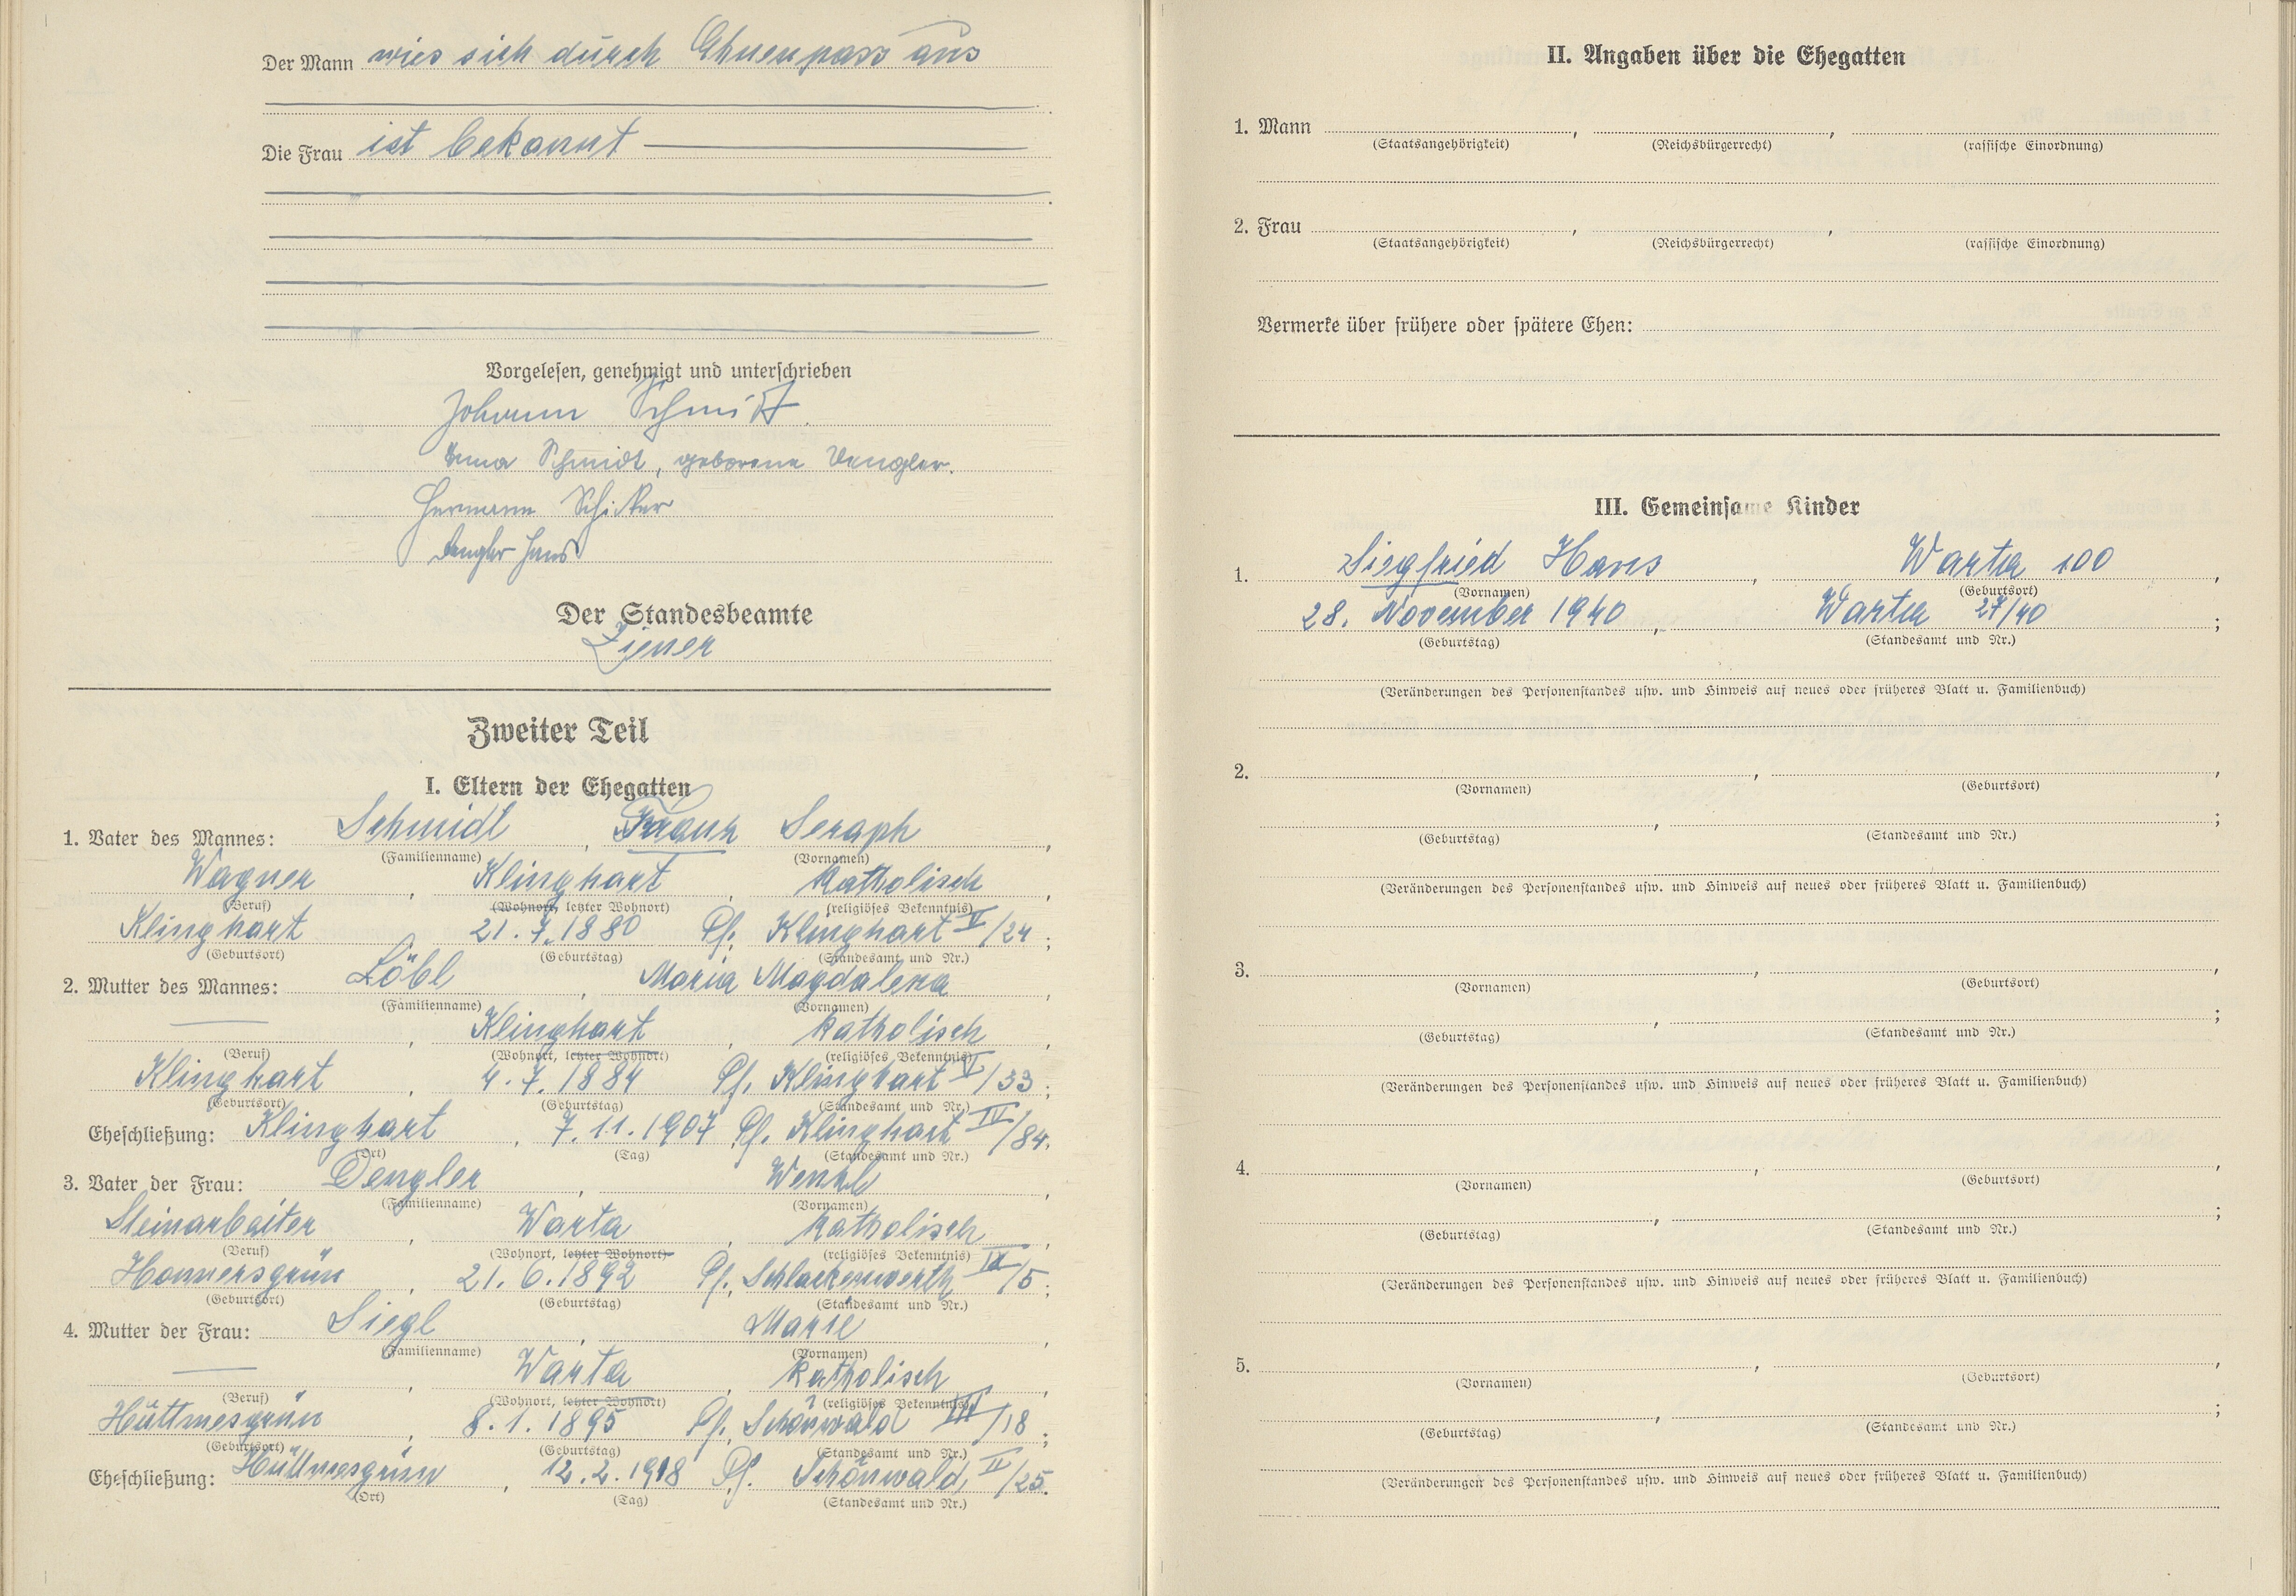 Der Mann wies sich durch Ahnenpass aus
Die Frau ist bekannt
Vorgelesen, genehmigt und unterschrieben
Johann Schmidt
Anna Schmidt, geborene Dengler.
Hermann Schicker
Dengler Hans
Der Standesbeamte
Ziener
Zweiter Teil
I. Eltern der Ehegatten
1. Vater des Mannes: Schmidt, Franz Seraph,
(Familienname) (Vornamen)
Wagner, Klinghart, katholisch,
(Beruf) (Wohnort, letzter Wohnort) (religiöses Bekenntnis)
Klinghart 21.7.1880 Pf. Klinghart V/24;
(Geburtsort) (Geburtstag) (Standesamt und Nr.)
2. Mutter des Mannes: Löbl, Maria Magdalena,
(Familienname) (Vornamen)
Klinghart, katholisch,
(Beruf) (Wohnort, letzter Wohnort) (religiöses Bekenntnis)
Klinghart, 4.7.1884 Pf. Klinghart V/33;
(Geburtsort) (Geburtstag) (Standesamt und Nr.)
Eheschließung: Klinghart, 7.11.1907 Pf. Klinghart IV/84.
(Ort) (Tag) (Standesamt und Nr.)
3. Vater der Frau: Dengler, Wenzl,
(Familienname) (Vornamen)
Steinarbeiter, Warta, katholisch,
(Beruf) (Wohnort, letzter Wohnort) (religiöses Bekenntnis)
Honnersgrün, 21.6.1892 Pf. Schlackenwerth IX/5;
(Geburtsort) (Geburtstag) (Standesamt und Nr.)
4. Mutter der Frau: Siegl, Marie,
(Familienname) (Vornamen)
Warta, katholisch,
(Beruf) (Wohnort, letzter Wohnort) (religiöses Bekenntnis)
Hüttmesgrün, 8.1.1895 Pf. Schönwald III/18;
(Geburtsort) (Geburtstag) (Standesamt und Nr.)
Eheschließung: Hüttmesgrün, 12.2.1918 Pf. Schönwald II/25.
(Ort) (Tag) (Standesamt und Nr.)
II. Angaben über die Ehegatten
1. Mann , ,
(Staatsangehörigkeit) (Reichsbürgerrecht) (rassische Einordnung)
2. Frau , ,
(Staatsangehörigkeit) (Reichsbürgerrecht) (rassische Einordnung)
Vermerke über frühere oder spätere Ehen:
III. Gemeinsame Kinder
1. Siegfried Hans, Warta 100,
(Vornamen) (Geburtsort)
28. November 1940, Warta 27/40;
(Geburtstag) (Standesamt und Nr.)
(Veränderungen des Personenstandes usw. und Hinweis auf neues oder früheres Blatt u. Familienbuch)
2. , ,
(Vornamen) (Geburtsort)
, ;
(Geburtstag) (Standesamt und Nr.)
(Veränderungen des Personenstandes usw. und Hinweis auf neues oder früheres Blatt u. Familienbuch)
3. , ,
(Vornamen) (Geburtsort)
, ;
(Geburtstag) (Standesamt und Nr.)
(Veränderungen des Personenstandes usw. und Hinweis auf neues oder früheres Blatt u. Familienbuch)
4. , ,
(Vornamen) (Geburtsort)
, ;
(Geburtstag) (Standesamt und Nr.)
(Veränderungen des Personenstandes usw. und Hinweis auf neues oder früheres Blatt u. Familienbuch)
5. , ,
(Vornamen) (Geburtsort)
, ;
(Geburtstag) (Standesamt und Nr.)
(Veränderungen des Personenstandes usw. und Hinweis auf neues oder früheres Blatt u. Familienbuch)